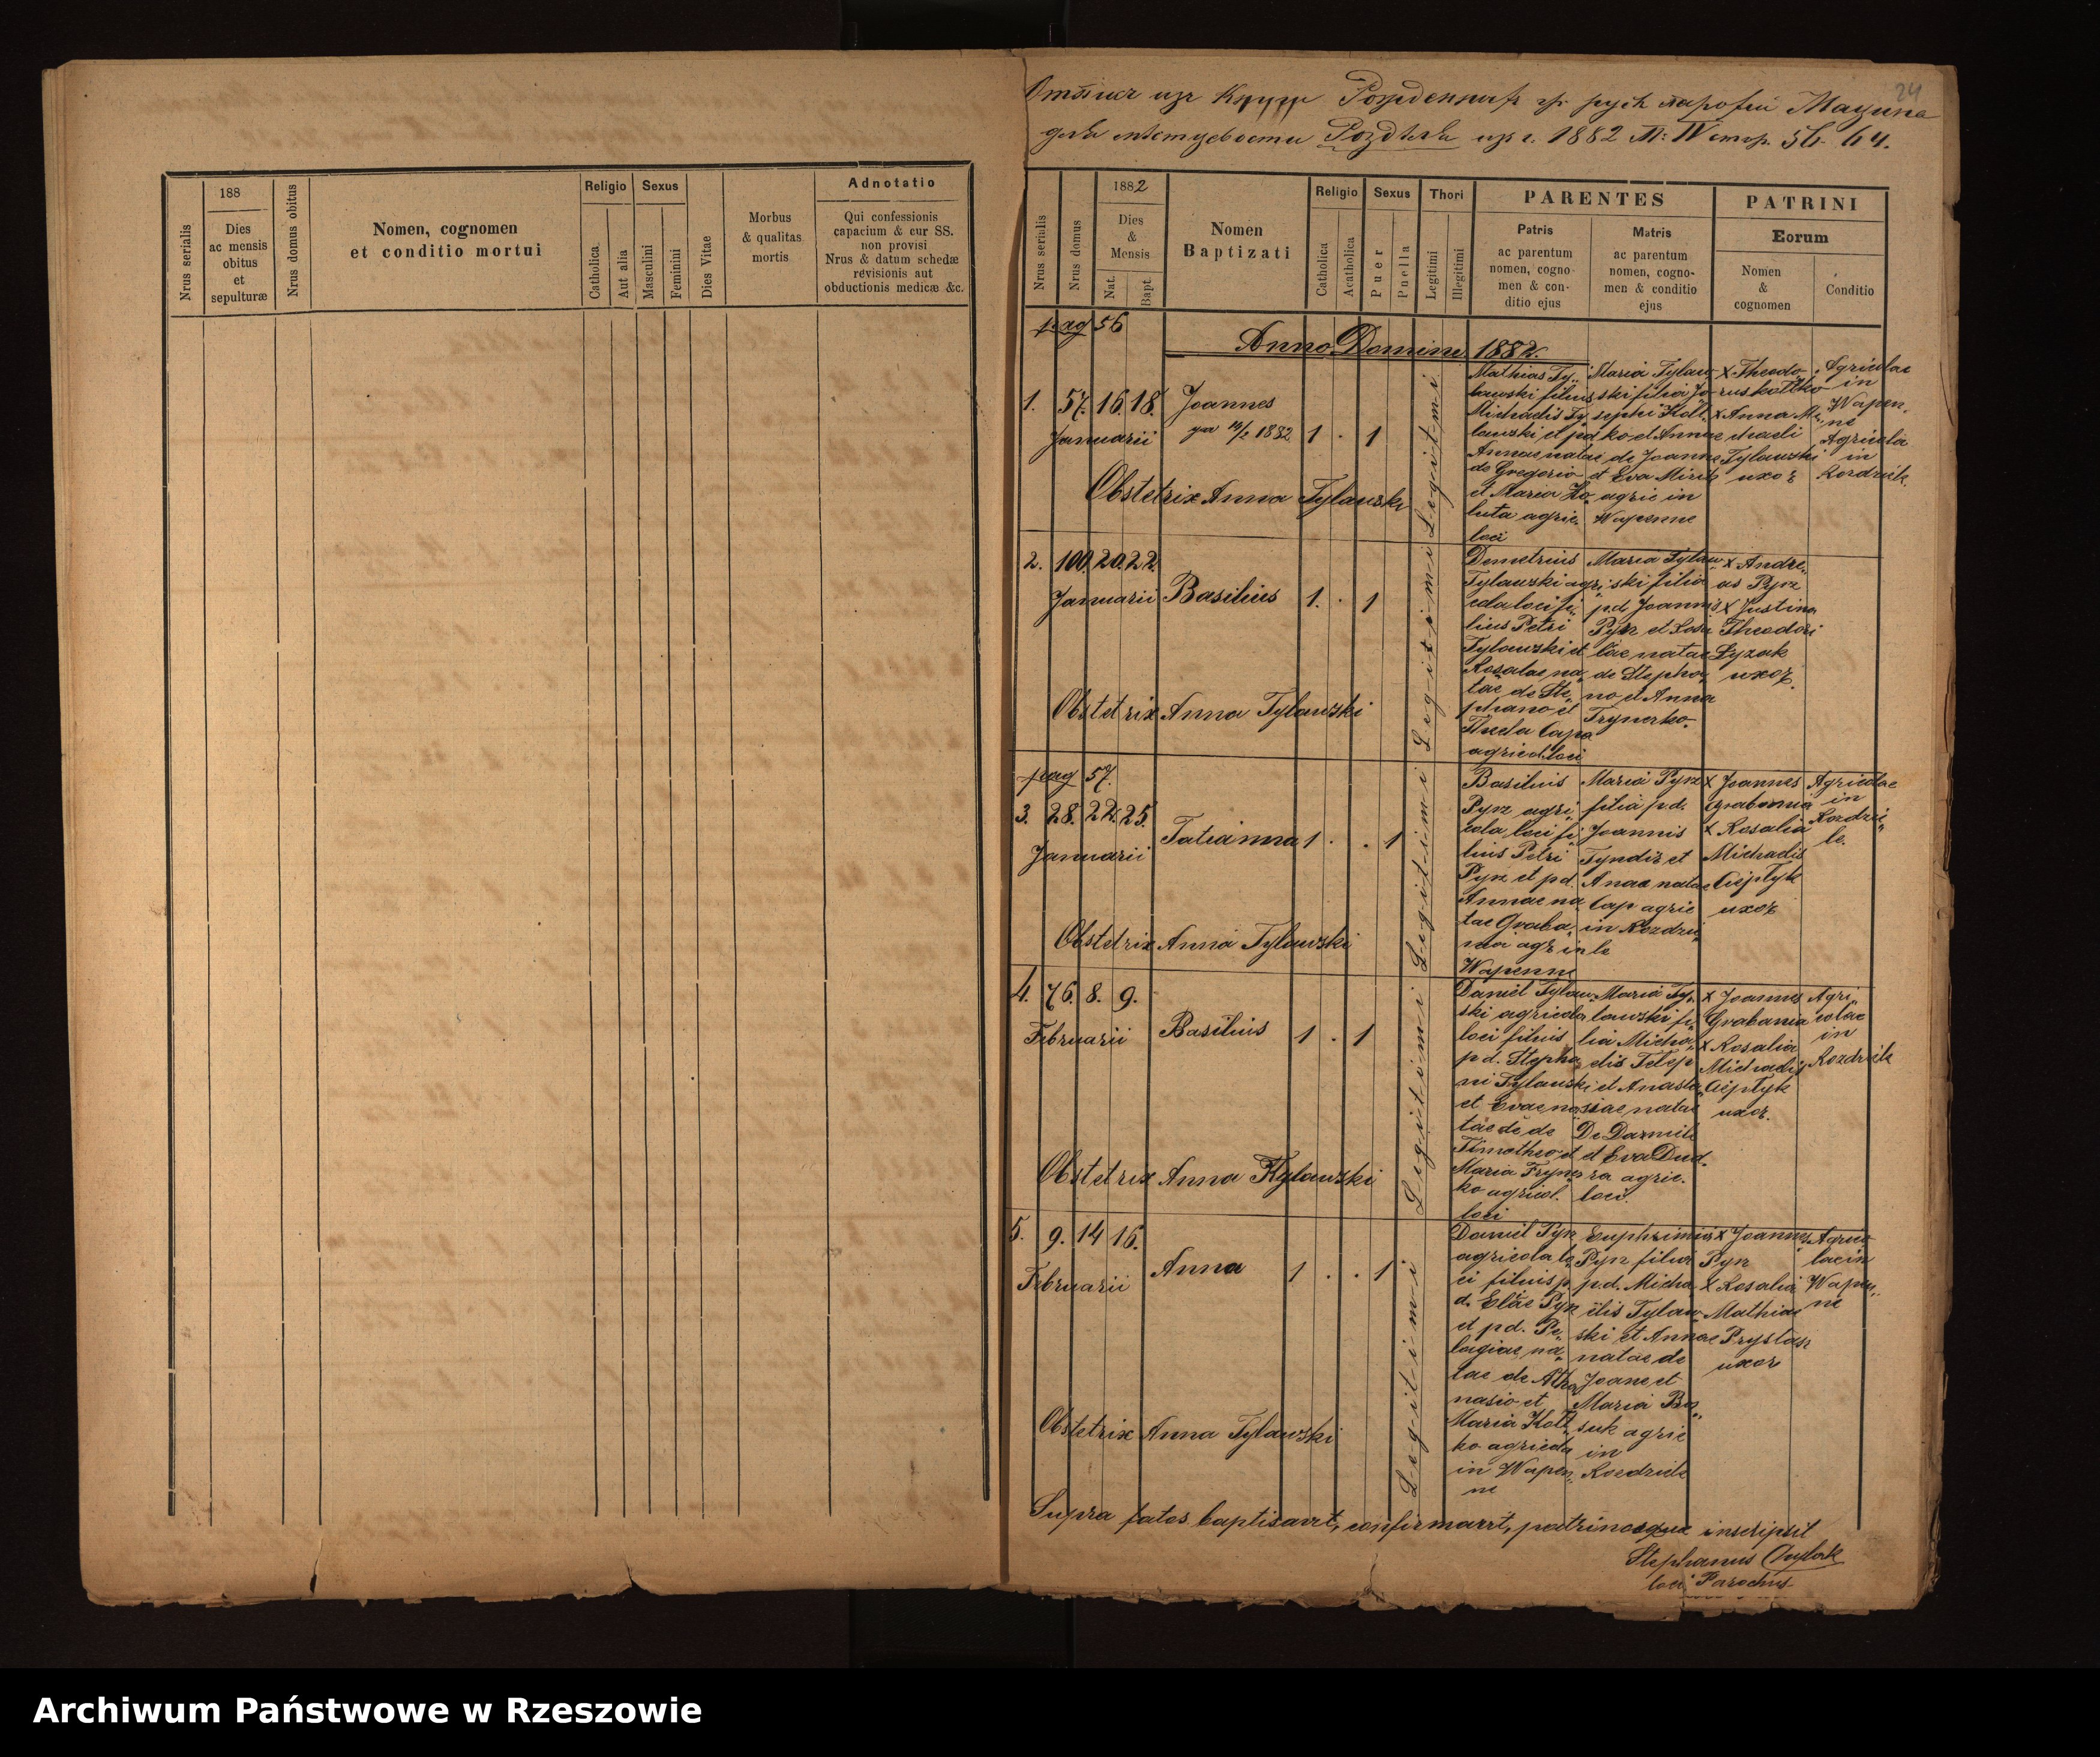 24
1882
IV
56 64.
Nrus serialis
188
Dies
ac mensis
obitus
et
sepulturæ
Nrus domus obitus
Nomen, cognomen
et conditio mortui
Religio
Catholica
Aut alia
Sexus
Masculini
Feminini
Dies Vitae
Morbus
& qualitas
mortis
Adnotatio
Qui confessionis
capacium & cur SS.
non provisi
Nrus & datum schedæ
revisionis aut
obductionis medicæ &c.
Nrus serialis
Nrus domus
1882
Dies
&
Mensis
Nat.
Bapt.
Nomen
Baptizati
Religio
Catholica
Acatholica
Sexus
Puer
Puella
Thori
Legitimi
Illegitimi
PARENTES
Patris
ac parentum
nomen, cogno-
men & con-
ditio ejus
Matris
ac parentum
nomen, cogno-
men & conditio
ejus
PATRINI
Eorum
Nomen
&
cognomen
Conditio
pag 56
Anno Domini 1882.
1. 57. 16. 18. Joannes
Januarii 1882 1 . 1
Legitimi
Obstetrix Anna Tylawski
Mathias Ty„
lawski filius
Michaelis Ty
lawski et pd
Annae natae
de Gregorio
et Maria Ho
luta agric.
loci
Maria Tylaw
ski filia Jo
sephi Kott
ko et Annae
de Joanne
et Eva Mirik
agric in
Wapenne
x Theodo
rus Kottko
x Anna Mi
chaeli
Tylawski
uxor
Agricolae
in
Wapen„
ne
Agricola
in
Rozdziele
2. 100. 20. 22.
Januarii Basilius 1. . 1
Legitimi
Obstetrix Anna Tylawski
Demetrius
Tylawski agri„
cola loci fi„
lius Petri
Tylawski et
Rosalae na„
tae de Ste„
phano et
Thecla Capa
agricol. loci
Maria Tylaw
ski filia
p.d. Joannis
Pyrz et Rosa
liae natae
de Stepha„
no et Anna
Fryncko
x Andre„
as Pyrz
x Justina
Theodori
Łyzak
uxor.
pag 57.
3. 28. 22. 25.
Januarii Tatianna 1 . . 1
Legitimi
Obstetrix Anna Tylawski
Basilius
Pyrz agri„
cola loci fi„
lius Petri
Pyrz et p.d.
Annae na
tae Graba„
nia agr in
Wapenne
Maria Pyrz
filia p.d.
Joannis
Tyndir et
Anae natae
Cap agric
in Rozdzie
le
x Joannes
Grabania
x Rosalia
Michaelis
Cieptyk
uxor
Agricolae
in
Rozdzie„
le.
4. 76. 8. 9.
Februarii Basilius 1 . 1
Legitimi
Obstetrix Anna Tylawski
Daniel Tylaw„
ski agricola
loci filius
p.d. Stepha„
ni Tylawski
et Evae na
tae de de
Timotheo et
Maria Frync
ko agricol.
loci
Maria Ty„
lawski fi„
lia Micha„
elis Telep
et Anasta„
siae natae
De Darmile
et Eva Dud„
ra agric.
loci.
x Joannes
Grabania
x Rosalia
Michaelis
Cieptyk
uxor.
Agri„
colae
in
Rozdziele
5. 9. 14 16.
Februarii Anna 1 . . 1
Legitimi
Obstetrix Anna Tylawski
Daniel Pyrz
agricola lo„
ci filius p.
d. Eliae Pyrz
et pd. Pe„
lagiae na„
tae de Atha
nasio et
Maria Kott„
ko agricola
in Wapen„
ne
Euphrimia
Pyrz filia
p.d. Micha
elis Tylaw
ski et Annae
natae de
Joane et
Maria
suk agric
in
Rozdziele
x Joannes
Pyrz
x Rosalia
Mathiae
Prystasz
uxor
Agrico
lae in
Wapen„
ne
Supra fatos baptisavit, confirmavit, patrinosque inscripsit
Stephanus
loci Parochus
Archiwum Państwowe w Rzeszowie